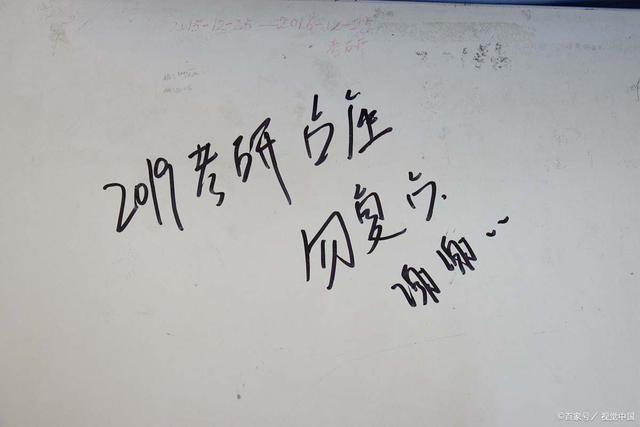 2015-12-25—2016-12-25
考研
2019考研占座
勿复占.
谢谢..
©百家号／视觉中国